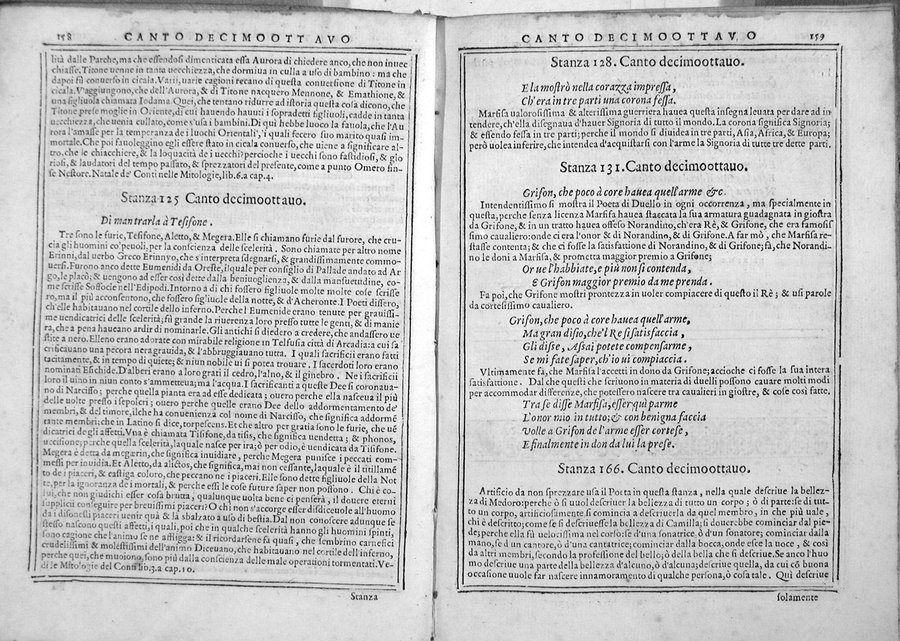 158 CANTO DECIMOOTTAVO
lità dalle Parche, ma che essendosi dimenticata essa Aurora di chiedere anco, che non inuec
chiasse, Titone uenne in tanta uecchiezza, che dormiua in culla a uso di bambino: ma che
dapoi fù conuerso in cicala. Varij, uarie cagioni recano di questa conuersione di Titone in
cicala. V'aggiungono, che dell'Aurora, & di Titone nacquero Mennone, & Emathione, &
una figliuola chiamata Iodama. Quei, che tentano ridurre ad istoria questa cosa dicono, che
Titone prese moglie in Oriente, di cui hauendo hauuti i sopradetti figliuoli, cadde in tanta
uecchiezza, che uenia cullato, come s'usa i bambini. Di quì hebbe luogo la fauola, che l'Au
rora l'amasse per la temperanza de i luochi Orientali, i quali fecero suo marito quasi im-
mortale. Che poi fauoleggino egli essere stato in cicala conuerso, che uiene a significare al-
tro, che le chiacchiere, & la loquacità de i uecchi? percioche i uecchi sono fastidiosi, & glo
riosi, & laudatori del tempo passato, & sprezzatori del presente, come a punto Omero fin-
se Nestore. Natale de' Conti nelle Mitologie, lib.6.a cap.4.
Stanza 125 Canto decimoottauo.
Di man trarla à Tesifone.
Tre sono le furie, Tesifone, Aletto, & Megera. Elle si chiamano furie dal furore, che cru-
cia gli huomini co'peuoli, per la conscienza delle scelerità. Sono chiamate per altro nome
Erinni, dal uerbo Greco Erinnyo, che s'interpreta sdegnarsi, & grandissimamente commo-
uersi. Furono anco dette Eumenidi da Oreste, ilquale per consiglio di Pallade andato ad Ar
go, le placò; & uengono ad esser così dette dalla beniuoglienza, & dalla mansuetudine, co-
me scrisse Sofocle nell'Edipodi. Intorno a di chi fossero figliuole molte molte cose scrisse
ro, ma il più acconsentono, che fossero figliuole della notte, & d'Acheronte. I Poeti dissero,
ch'elle habitauano nel cortile dello inferno. Perche l'Eumenide erano tenute per grauissi-
me uendicatrici delle scelerità; fù grande la riuerenza loro presso tutte le genti, & di manie
ra, che a pena haueano ardir di nominarle. Gli antichi si diedero a credere, che andassero ue
stite a nero. Elleno erano adorate con mirabile religione in Telfusia città di Arcadia: a cui sa
crificauano una pecora nera grauida, & l'abbruggiauano tutta. I quali sacrificii erano fatti
tacitamente, & in tempo di quiete; & niun nobile ui si potea trouare. I sacerdoti loro erano
nominati Eschide. D'alberi erano a loro grati il cedro, l'alno, & il ginebro. Ne i sacrificii
loro il uino in niun conto s'ammetteua; ma l'acqua. I sacrificanti a queste Dee si coronaua-
no di Narciso; perche quella pianta era ad esse dedicata; ouero perche ella nasceua il più
delle uolte presso i sepolcri; ouero perche quelle erano Dee dello addormentamento de'
membri, & del timore, ilche ha conuenienza col nome di Narciso, che significa addorme
tante membri; che in Latino si dice, torpescens. Et che altro per gratia sono le furie, che uē
dicatrici de gli affetti. Vna è chiamata Tisifone, da tisis, che significa uendetta; & phonos,
uccisione; perche quella scelerità, laquale nasce per ira, ò per odio, è uendicata da Tisifone.
Megera è detta da megarin, che significa inuidiare, perche Megera punisce i peccati com-
messi per inuidia. Et Aletto, da alictos, che significa, mai non cessante, laquale è il titillamē
to de i piaceri, & castiga coloro, che peccano ne i piaceri. Elle sono dette figliuole della Not
te, per la ignoranza de i mortali, & perche essi le cose future saper non possono. Chi è co-
lui, che non giudichi esser cosa brutta, qualunque uolta bene ci penserà, il douere eterni
supplicii conseguire per breuissimi piaceri? O chi non s'accorge esser disdiceuole all'huomo
da i disonesti piaceri uenir quà & là sbalzato a uso di bestia. Dal non conoscere adunque se
stesso nascono questi affetti, i quali, poi che in qualche scelerità hanno gli huomini spinti,
sono cagione che l'animo se ne affligga: & il ricordarsene fà quasi, che sembrino carnefici
crudelissimi & molestissimi dell'animo. Diceuano, che habitauano nel cortile dell'inferno,
perche quei, che muoiono, sono più dalla conscienza delle male operationi tormentati. Ve-
di le Mitologie del Conti lib.3.a cap.10.
Stanza
CANTO DECIMOOTTAVO 159
Stanza 128. Canto decimoottauo.
E la mostrò nella corazza impressa,
Ch'era in tre parti una corona fessa.
Marfisa ualorosissima & alterissima guerriera hauea questa insegna leuata per dare ad in
tendere, ch'ella disegnaua d'hauer Signoria di tutto il mondo. La corona significa Signoria;
& essendo fessa in tre parti; perche il mondo si diuidea in tre parti, Asia, Africa, & Europa;
però uolea inferire, che intendea d'acquistarsi con l'arme la Signoria di tutte tre dette parti.
Stanza 131. Canto decimoottauo.
Grifon, che poco à core hauea quell'arme &c.
Intendentissimo si mostra il Poeta di Duello in ogni occorrenza, ma specialmente in
questa, perche senza licenza Marfisa hauea staccata la sua armatura guadagnata in giostra
da Grifone, & in un tratto hauea offeso Norandino, ch'era Rè, & Grifone, che era famosis
simo caualiero: onde ci era l'onor & di Norandino, & di Grifone. A far mò, che Marfisa re-
stasse contenta; & che ci fosse la satisfattione di Norandino, & di Grifone; fà, che Norandi-
no le doni a Marfisa, & prometta maggior premio a Grifone;
Or ue l'habbiate, e più non si contenda,
E Grifon maggior premio da me prenda.
Fa poi, che Grifone mostri prontezza in uoler compiacere di questo il Rè; & usi parole
da cortesissimo caualiero.
Grifon, che poco à core hauea quell'arme,
Ma gran disio, che'l Re si satisfaccia,
Gli disse, Assai potete compensarme,
Se mi fate saper, ch'io ui compiaccia.
Vltimamente fà, che Marfisa l'accetti in dono da Grifone; accioche ci fosse la sua intera
satisfattione. Dal che questi che scriuono in materia di duelli possono cauare molti modi
per accommodar differenze, che potessero nascere tra caualieri in giostre, & cose così fatte.
Tra se disse Marfisa, esser quì parme
L'onor mio in tutto; & con benigna faccia
Volle a Grifon de l'arme esser cortese,
E finalmente in don da lui la prese.
Stanza 166. Canto decimoottauo.
Artificio da non sprezzare usa il Poeta in questa stanza, nella quale descriue la bellez-
za di Medoro: perche ò si uuol descriuer la bellezza di tutto un corpo; ò di parte: se di tut-
to un corpo, artificiosamente si comincia a descriuerla da quel membro, in che più uale,
chi è descritto; come se si descriuesse la bellezza di Camilla; si douerebbe cominciar dal pie-
de; perche ella fù uelocissima nel corso: se d'una sonatrice, ò d'un sonatore; cominciar dalla
mano, se d'un cantore, ò d'una cantatrice; cominciar dalla bocca, onde esce la uoce, & così
da altri membri, secondo la professione del bello; ò della bella che si descriue. Se anco l'huo
mo descriue una parte della bellezza d'alcuno, ò d'alcuna; descriue quella, da cui cō buona
occasione uuole far nascere innamoramento di qualche persona, ò cosa tale. Quì descriue
solamente